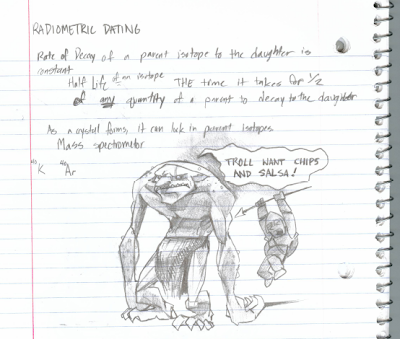 RADIOMETRIC DATING
Rate of Decay of a parent isotope to the daughter is
constant
Half Life of an isotope = THE time it takes for 1/2
of any quantity of a parent to decay to the daughter
As a crystal forms, it can lock in parent isotopes
Mass spectrometor
40K 40Ar
TROLL WANT CHIPS
AND SALSA!